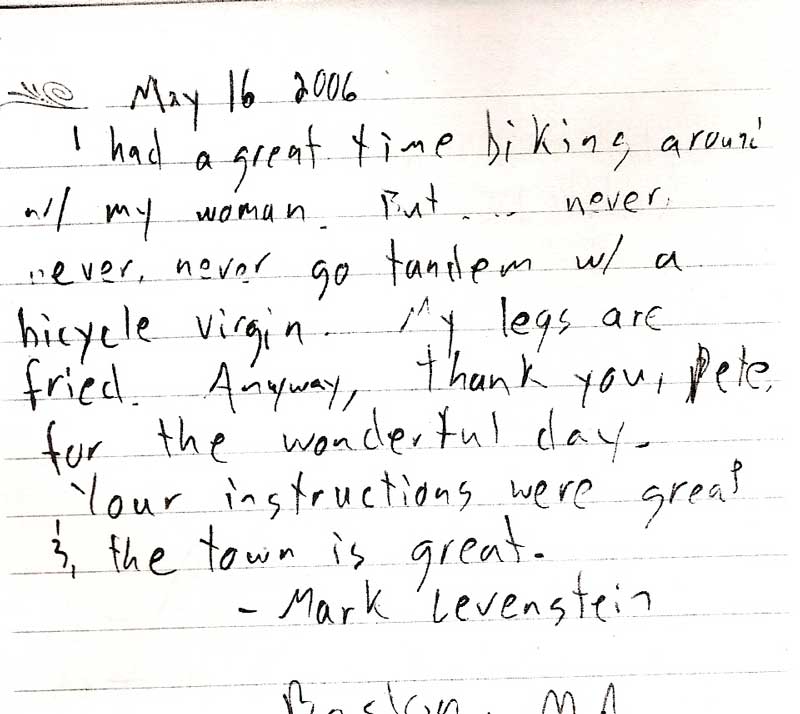 May 16 2006
I had a great time biking around
w/ my woman. But .... never,
never, never go tandem w/ a
bicycle virgin. My legs are
fried. Anyway, thank you, Pete,
for the wonderful day.
Your instructions were great
&, the town is great.
- Mark Levenstein
Boston, MA